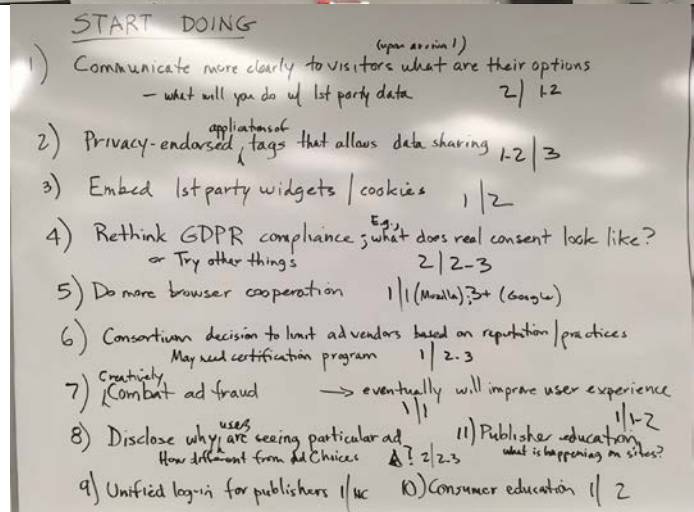 START DOING
(upon arrival)
1) Communicate more clearly to visitors what are their options
– what will you do w/ 1st party data 2 | 1-2
applications of
2) Privacy-endorsed tags that allows data sharing 1-2 | 3
3) Embed 1st party widgets / cookies 1 | 2
4) Rethink GDPR compliance; E.g., what does real consent look like?
or Try other things 2 | 2-3
5) Do more browser cooperation 1 | 1 (Mozilla); 3+ (Google)
6) Consortium decision to limit ad vendors based on reputation / practices
May need certification program 1 | 2-3
Creatively
7) Combat ad fraud → eventually will improve user experience
1 | 1
8) Disclose why users are seeing particular ad
How different from Ad Choices ? 2 | 2-3
11) Publisher education 1 | 1-2
what is happening on sites?
9) Unified log-in for publishers 1 |
10) Consumer education 1 | 2